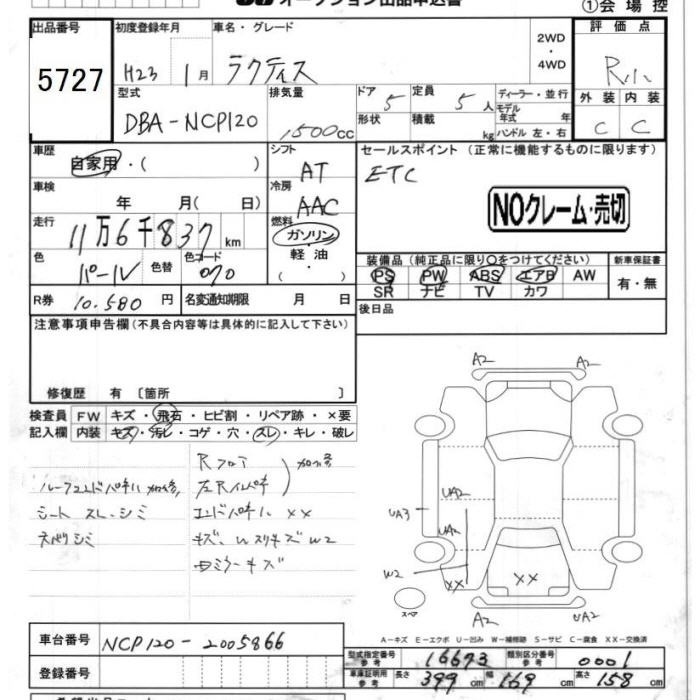 オークション出品申込書 ①会場控
出品番号 初度登録年月 車名・グレード 2WD・4WD 評価点
5727 H23 1月 ラクティス
型式 排気量 ドア 定員 ディーラー・並行 外装 内装
DBA-NCP120 1500cc 5 5人 モデル年式 年 C C
形状 積載 kg ハンドル 左・右
車歴 シフト セールスポイント (正常に機能するものに限ります)
自家用・( ) AT ETC
車検 冷房
年 月( 日) AAC NOクレーム・売切
走行 燃料
11万6千837km ガソリン・軽油・( )
色 色替 色コード 装備品(純正品に限り○をつけてください) 新車保証書
パール 070 PS PW ABS エアB AW 有・無
SR ナビ TV カワ
R券 10.580円 名変通知期限 月 日 後日品
注意事項申告欄(不具合内容等は具体的に記入して下さい)
修復歴 有 [箇所 ]
検査員 FW キズ・飛石・ヒビ割・リペア跡・×要
記入欄 内装 キズ・汚レ・コゲ・穴・スレ・キレ・破レ
Rフロア
シート スレ・シミ
エンドパネル ××
A2 A2
UA2
UA3
W2
×× ××
A2 UA2
スペア
A-キズ E-エクボ U-凹み W-補修跡 S-サビ C-腐食 XX-交換済
車台番号 NCP120-2005866
型式指定番号 参考 16673 類別区分番号 参考 0001
登録番号
車庫証明用 参考 長さ 399cm 幅 169cm 高さ 158cm